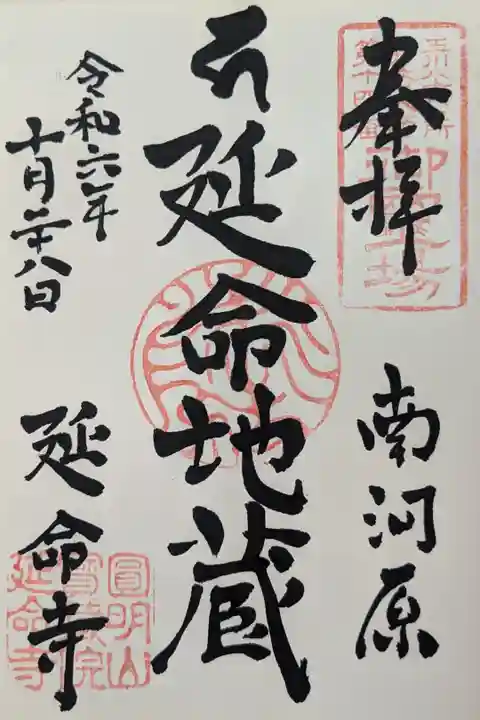 奉拝
南河原
延命地蔵
令和六年
十月二十八日
延命寺
御霊場
圓明山
寳蔵院
延命寺